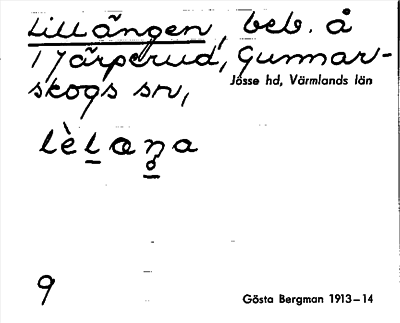 Lillängen, beb. å
Tjärperud, Gunnar-
skogs sn,
Jösse hd, Värmlands län
9
Gösta Bergman 1913–14